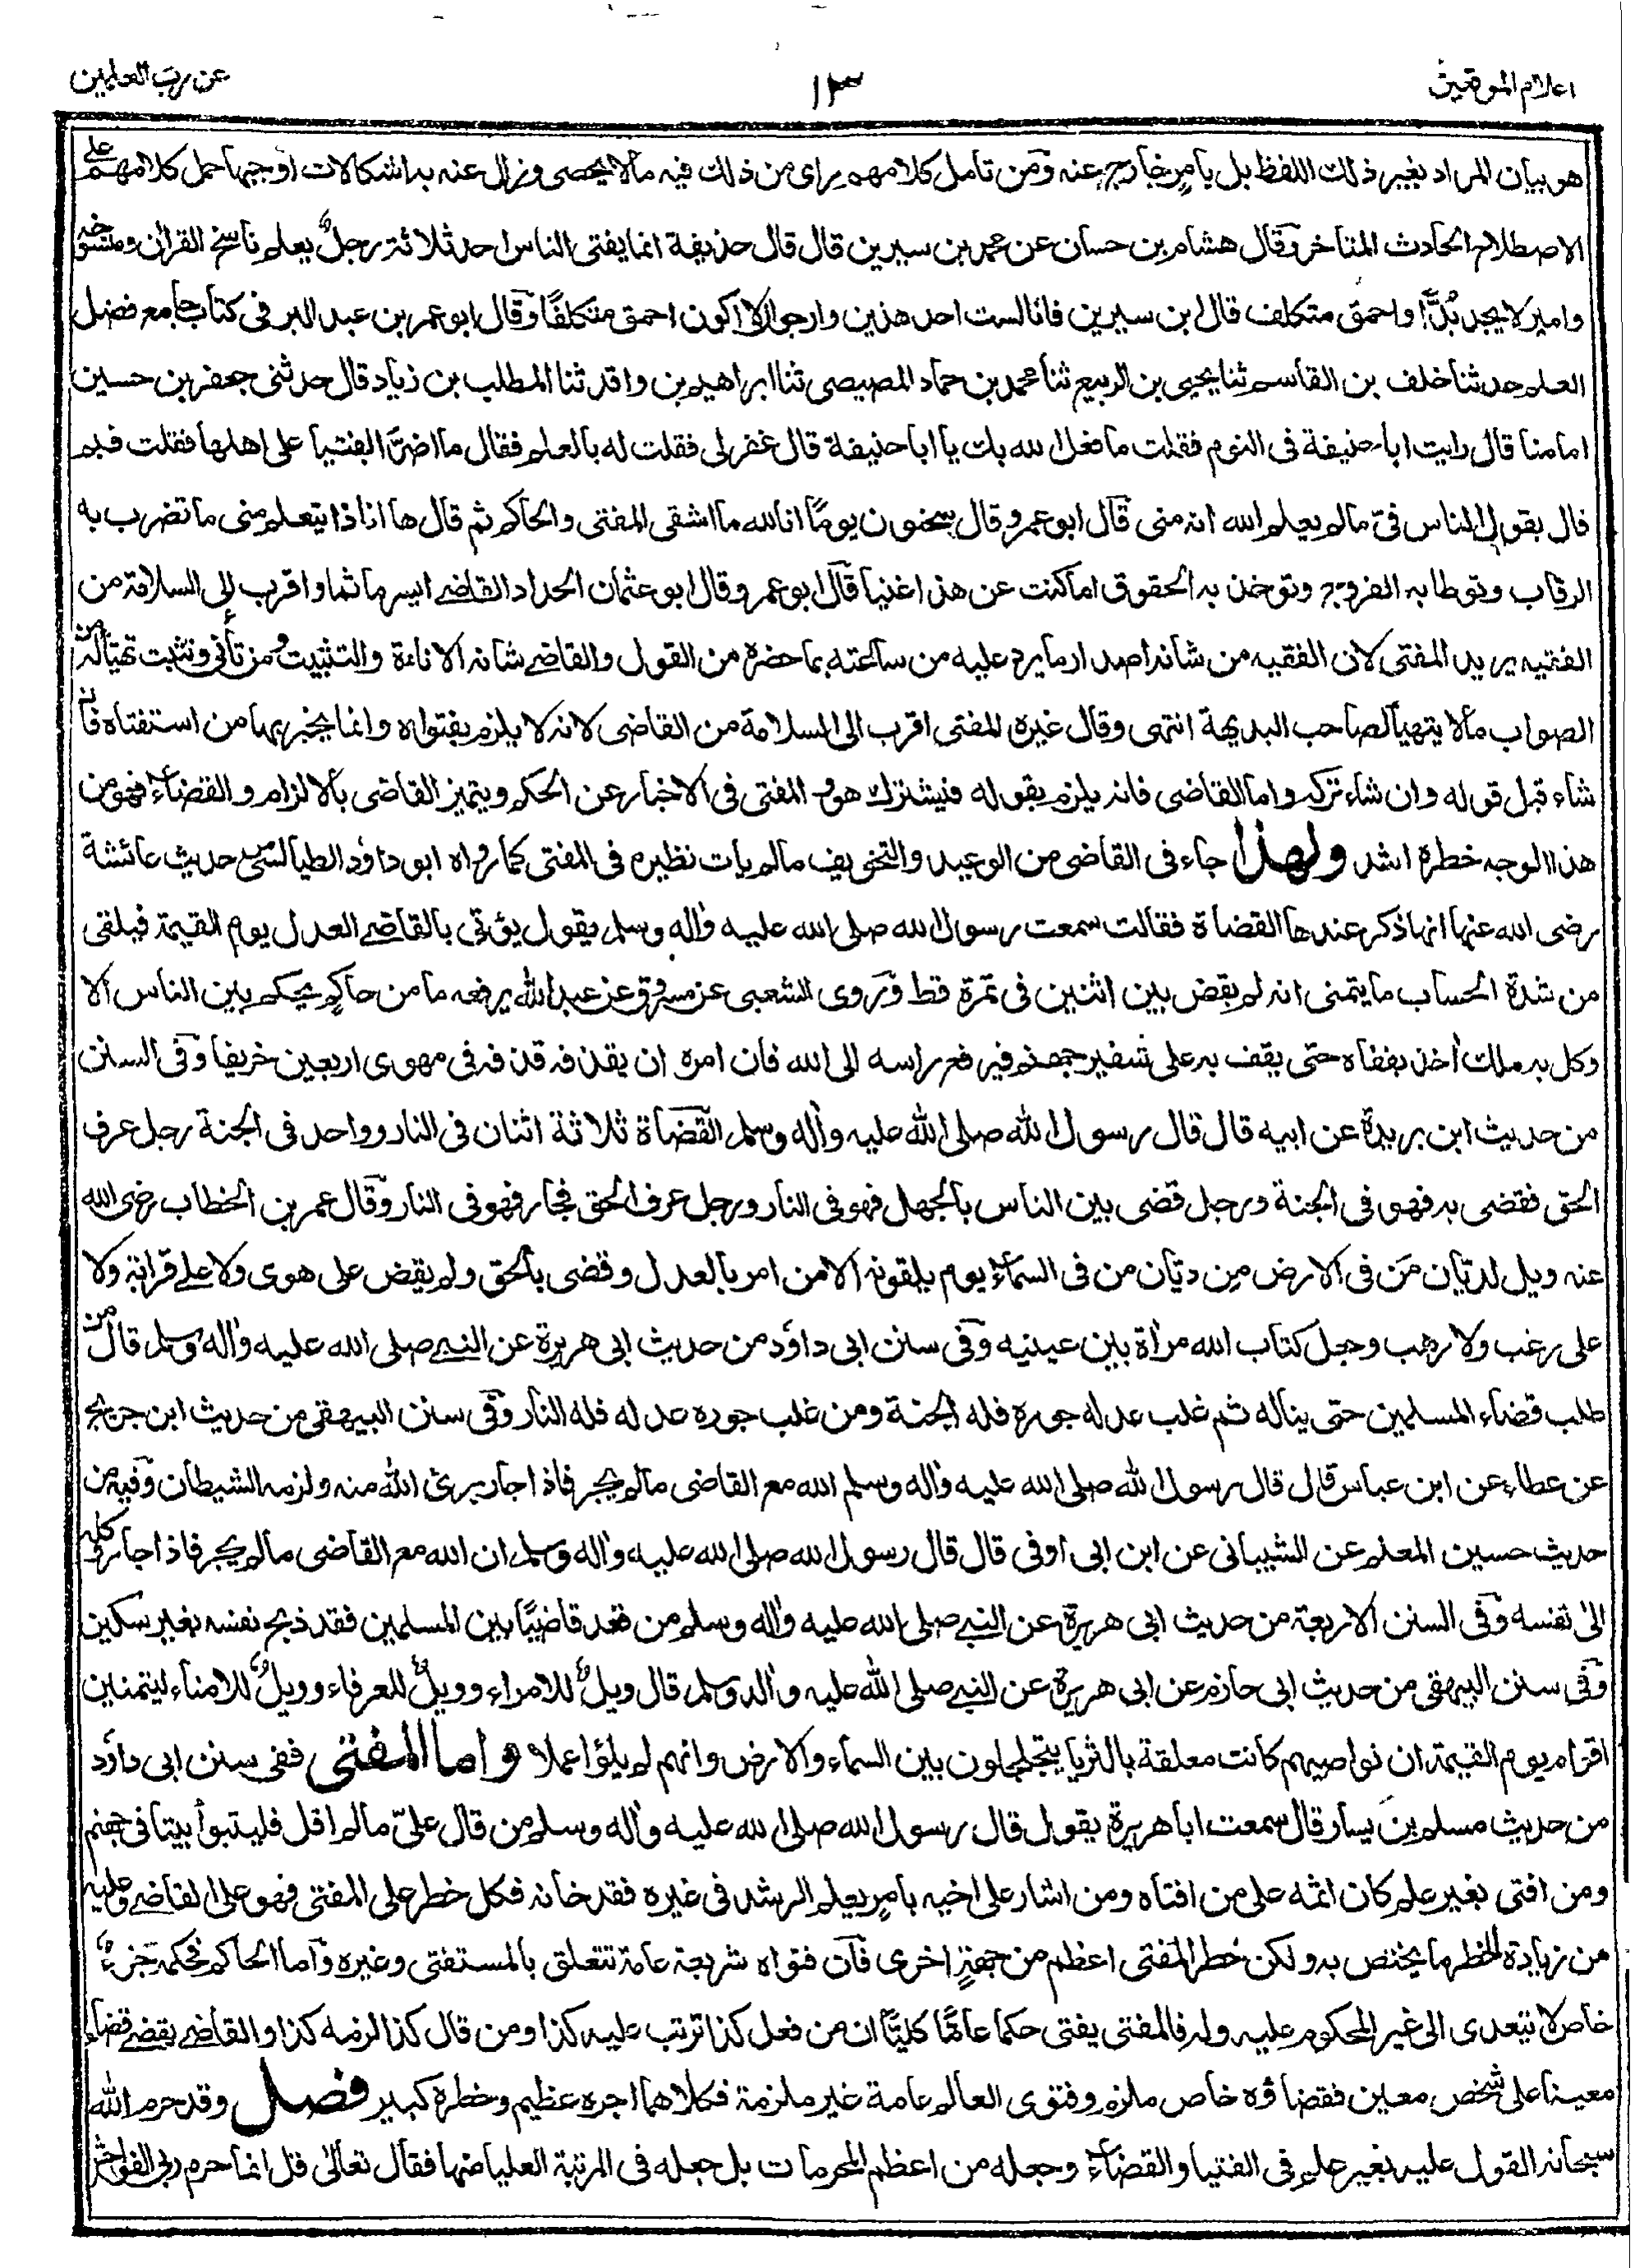 اعلام الموقعين
١٣
عن رب العلمين
هو بيان المراد بغير ذلك اللفظ بل بامرٍ خارجٍ عنه ومن تامل كلامهم راى من ذلك فيه مالا يحصى وزال عنه به اشكالات اوجبها حمل كلامهم على
الاصطلاح الحادث المتاخر وقال هشام بن حسان عن محمد بن سيرين قال قال حذيفة انما يفتى الناس احد ثلاثة رجلٌ يعلم ناسخ القران ومنسوخه
وامير لا يجد بُدًّا واحمق متكلف قال ابن سيرين فانا لست احد هذين وارجو ان لا اكون احمق متكلفًا وقال ابو عمر بن عبد البر فى كتاب جامع فضل
العلم حدثنا خلف بن القاسم ثنا يحيى بن الربيع ثنا محمد بن حماد المصيصى ثنا ابراهيم بن واقد ثنا المطلب بن زياد قال حدثنى جعفر بن حسين
امامنا قال رايت ابا حنيفة فى النوم فقلت ما فعل الله بك يا ابا حنيفة قال غفر لى فقلت له بالعلم فقال ما اضرَّ الفتيا على اهلها فقلت فبم
قال بقول الناس فىّ مالم يعلم الله انه منى قال ابو عمر وقال سحنون يومًا انا لله ما اشقى المفتى والحاكم ثم قال ها انا ذا يتعلم منى ما تضرب به
الرقاب وتوطا به الفروج وتوخذ به الحقوق اما كنت عن هذا غنيا قال ابو عمر وقال ابو عثمان الحداد القاضے ايسر ماثما واقرب الى السلامة من
الفقيه يريد المفتى لان الفقيه من شانه اصدار ما يرد عليه من ساعته بما حضره من القول والقاضے شانه الاناءة والتثبيت ومن تأنى وتثبت تهيأ له من
الصواب مالا يتهيأ لصاحب البديهة انتهى وقال غيره المفتى اقرب الى السلامة من القاضى لانه لا يلزم بفتواه وانما يخبر بها من استفتاه فان
شاء قبل قوله وان شاء تركه واما القاضى فانه يلزم بقوله فيشترك هو والمفتى فى الاخبار عن الحكم ويتميز القاضى بالالزام والقضاء فهو من
هذا الوجه خطره اشد ولهذا جاء فى القاضى من الوعيد والتخويف مالم يات نظيره فى المفتى كما رواه ابو داؤد الطيالسى من حديث عائشة
رضى الله عنها انها ذكر عندها القضاة فقالت سمعت رسول الله صلى الله عليه واٰله وسلم يقول يؤتى بالقاضے العدل يوم القيمة فيلقى
من شدة الحساب ما يتمنى انه لم يقض بين اثنين فى تمرة قط وروى الشعبى عن مسروق عن عبد الله يرفعه ما من حاكمٍ يحكم بين الناس الا
وكل به ملك اخذ بقفاه حتى يقف به على شفير جهنم فيرفع راسه الى الله فان امره ان يقذفه قذفه فى مهوى اربعين خريفا وفى السنن
من حديث ابن بريدة عن ابيه قال قال رسول الله صلى الله عليه واٰله وسلم القضاة ثلاثة اثنان فى النار وواحد فى الجنة رجل عرف
الحق فقضى به فهو فى الجنة ورجل قضى بين الناس بالجهل فهو فى النار ورجل عرف الحق فجار فهو فى النار وقال عمر بن الخطاب رضى الله
عنه ويل لديّان مَن فى الارض مِن ديّان من فى السماء يوم يلقونه الا من امر بالعدل وقضى بالحق ولم يقض على هوى ولا على قرابة ولا
على رغب ولا رهب وجعل كتاب الله مراٰة بين عينيه وفى سنن ابى داؤد من حديث ابى هريرة عن النبے صلى الله عليه واٰله وسلم قال من
طلب قضاء المسلمين حتى يناله ثم غلب عدله جوره فله الجنة ومن غلب جوره عدله فله النار وفى سنن البيهقى من حديث ابن جريج
عن عطاء عن ابن عباس قال قال رسول الله صلى الله عليه واٰله وسلم الله مع القاضى مالم يجر فاذا جار برئ الله منه ولزمه الشيطان وفيه من
حديث حسين المعلم عن الشيبانى عن ابن ابى اوفى قال قال رسول الله صلى الله عليه واٰله وسلم ان الله مع القاضى مالم يجر فاذا جار وكله
الىٰ نفسه وفى السنن الاربعة من حديث ابى هريرة عن النبے صلى الله عليه واٰله وسلم من قعد قاضيًا بين المسلمين فقد ذبح نفسه بغير سكين
وفى سنن البيهقى من حديث ابى حازم عن ابى هريرة عن النبے صلى الله عليه واٰله وسلم قال ويلٌ للامراء وويلٌ للعرفاء وويلٌ للامناء ليتمنين
اقوام يوم القيمة ان نواصيهم كانت معلقة بالثريا يتجلجلون بين السماء والارض وانهم لم يلؤا عملا واما المفتى ففى سنن ابى داؤد
من حديث مسلم بن يسار قال سمعت ابا هريرة يقول قال رسول الله صلى الله عليه واٰله وسلم من قال علىّ مالم اقل فليتبوأ بيتا فى جهنم
ومن افتى بغير علم كان اثمه على من افتاه ومن اشار على اخيه بامرٍ يعلم الرشد فى غيره فقد خانه فكل خطر على المفتى فهو على القاضے وعليه
من زيادة الخطر ما يختص به ولكن خطر المفتى اعظم من جهةٍ اخرى فان فتواه شريعة عامة تتعلق بالمستفتى وغيره واما الحاكم فحكمه جزءٌ
خاص لا يتعدى الى غير المحكوم عليه وله فالمفتى يفتى حكما عامًّا كليًّا ان من فعل كذا ترتب عليه كذا ومن قال كذا لزمه كذا والقاضے يقضے قضاء
معينا على شخص معين فقضاؤه خاص ملزم وفتوى العالم عامة غير ملزمة فكلاهما اجره عظيم وخطره كبير فصل وقد حرم الله
سبحانه القول عليه بغير علم فى الفتيا والقضاء وجعله من اعظم المحرمات بل جعله فى المرتبة العليا منها فقال تعالىٰ قل انما حرم ربى الفواحش